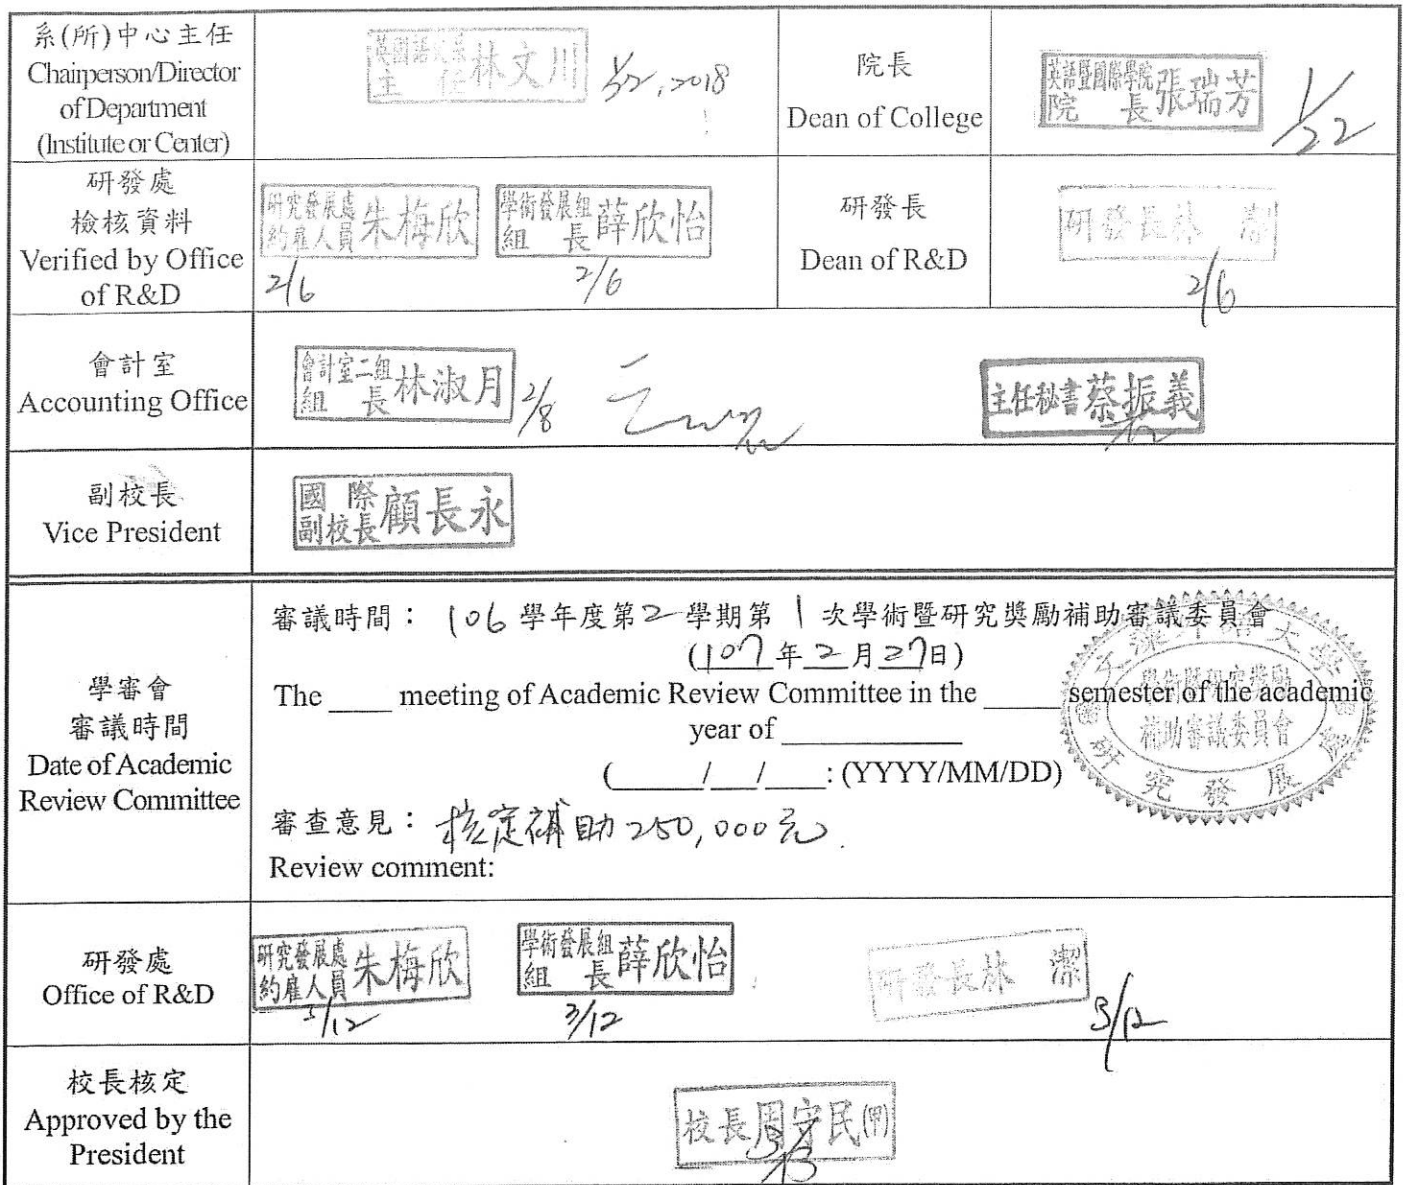 系(所)中心主任
Chairperson/Director
of Department
(Institute or Center)
英國語文系
主 任 林文川
1/22, 2018
院長
Dean of College
英語暨國際學院
院 長 張瑞芳
1/22
研發處
檢核資料
Verified by Office
of R&D
研究發展處
約雇人員 朱梅欣
2/6
學術發展組
組 長 薛欣怡
2/6
研發長
Dean of R&D
研發長林 潔
2/6
會計室
Accounting Office
會計室二組
組 長 林淑月
2/8
主任秘書 蔡振義
副校長
Vice President
國 際
副校長 顧長永
學審會
審議時間
Date of Academic
Review Committee
審議時間：106學年度第2學期第1次學術暨研究獎勵補助審議委員會
(107年2月27日)
The ____ meeting of Academic Review Committee in the _____ semester of the academic
year of ____________
(______/__/____: (YYYY/MM/DD)
審查意見：核定補助250,000元
Review comment:
文藻外語大學
學術暨研究獎勵
補助審議委員會
研究發展處
研發處
Office of R&D
研究發展處
約雇人員 朱梅欣
3/12
學術發展組
組 長 薛欣怡
3/12
研發長林 潔
3/12
校長核定
Approved by the
President
校長周守民(甲)
3/13